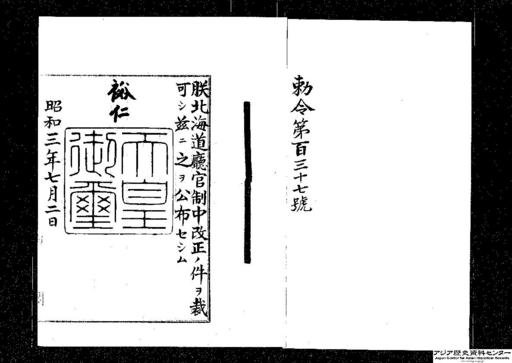 勅令第百三十七號
朕北海道廳官制中改正ノ件ヲ裁
可シ茲ニ之ヲ公布セシム
裕仁
天皇
御璽
昭和三年七月二日
アジア歴史資料センター
Japan Center for Asian Historical Records